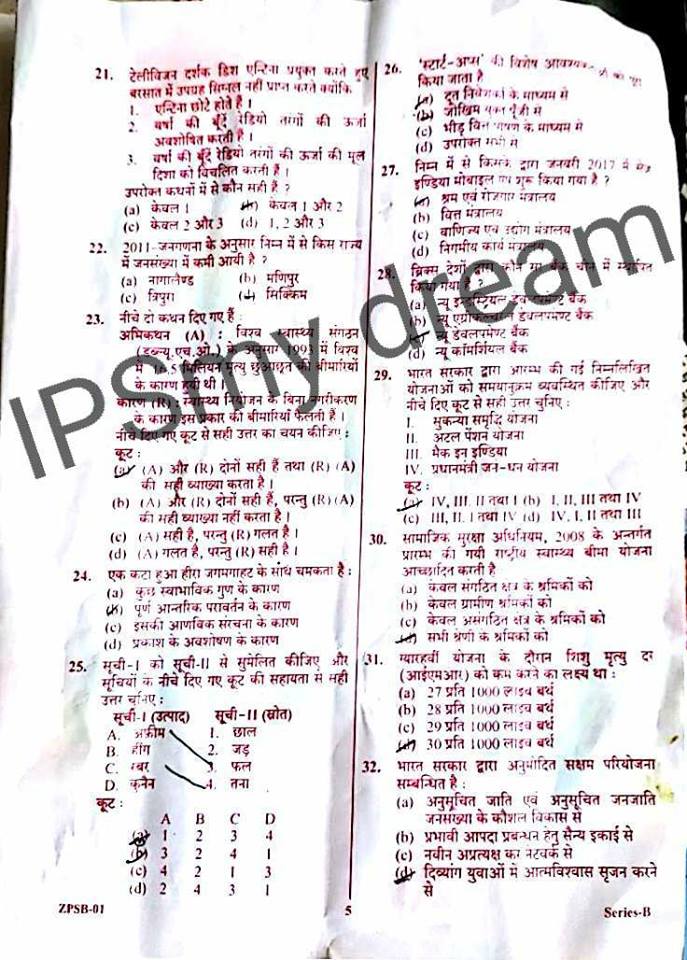 21. टेलीविजन दर्शक डिश एन्टिना प्रयुक्त करते हुए
बरसात में उपग्रह सिग्नल नहीं प्राप्त करते क्योंकि
1. एन्टिना छोटे होते हैं ।
2. वर्षा की बूँदें रेडियो तरंगों की ऊर्जा
अवशोषित करती हैं ।
3. वर्षा की बूँदें रेडियो तरंगों की ऊर्जा की मूल
दिशा को विचलित करती हैं ।
उपरोक्त कथनों में से कौन सही है ?
(a) केवल 1 (b) केवल 1 और 2
(c) केवल 2 और 3 (d) 1, 2 और 3
22. 2011-जनगणना के अनुसार निम्न में से किस राज्य
में जनसंख्या में कमी आयी है ?
(a) नागालैण्ड (b) मणिपुर
(c) त्रिपुरा (d) सिक्किम
23. नीचे दो कथन दिए गए हैं :
अभिकथन (A) : विश्व स्वास्थ्य संगठन
(डब्ल्यू.एच.ओ.) के अनुसार 1993 में विश्व
में 16.5 मिलियन मृत्यु छुआछूत की बीमारियों
के कारण हुयी थी ।
कारण (R) : स्वास्थ्य नियोजन के बिना नगरीकरण
के कारण इस प्रकार की बीमारियाँ फैलती हैं ।
नीचे दिए गए कूट से सही उत्तर का चयन कीजिए :
कूट :
(a) (A) और (R) दोनों सही हैं तथा (R) (A)
की सही व्याख्या करता है ।
(b) (A) और (R) दोनों सही हैं, परन्तु (R) (A)
की सही व्याख्या नहीं करता है ।
(c) (A) सही है, परन्तु (R) गलत है ।
(d) (A) गलत है, परन्तु (R) सही है ।
24. एक कटा हुआ हीरा जगमगाहट के साथ चमकता है :
(a) कुछ स्वाभाविक गुण के कारण
(b) पूर्ण आन्तरिक परावर्तन के कारण
(c) इसकी आणविक संरचना के कारण
(d) प्रकाश के अवशोषण के कारण
25. सूची-I को सूची-II से सुमेलित कीजिए और
सूचियों के नीचे दिए गए कूट की सहायता से सही
उत्तर चुनिए :
सूची-I (उत्पाद) सूची-II (स्रोत)
A. अफीम 1. छाल
B. हींग 2. जड़
C. रबर 3. फल
D. कुनैन 4. तना
कूट :
A B C D
(a) 1 2 3 4
(b) 3 2 4 1
(c) 4 2 1 3
(d) 2 4 3 1
26. 'स्टार्ट-अप्स' की विशेष
किया जाता है
(a) दूत निवेशकों के माध्यम से
(b) जोखिम युक्त पूँजी से
(c) भीड़ वित्त पोषण के माध्यम से
(d) उपरोक्त सभी से
27. निम्न में से किसके द्वारा जनवरी 2017 में
इण्डिया मोबाइल एप शुरू किया गया है ?
(a) श्रम एवं रोजगार मंत्रालय
(b) वित्त मंत्रालय
(c) वाणिज्य एवं उद्योग मंत्रालय
(d) निगमीय कार्य मंत्रालय
28. ब्रिक्स देशों द्वारा कौन सा बैंक चीन में स्थापित
किया गया है ?
(a) न्यू इन्डस्ट्रियल डेवलपमेण्ट बैंक
(b) न्यू एग्रीकल्चरल डेवलपमेण्ट बैंक
(c) न्यू डेवलपमेण्ट बैंक
(d) न्यू कॉमर्शियल बैंक
29. भारत सरकार द्वारा आरम्भ की गई निम्नलिखित
योजनाओं को समयानुक्रम व्यवस्थित कीजिए और
नीचे दिए कूट से सही उत्तर चुनिए :
I. सुकन्या समृद्धि योजना
II. अटल पेंशन योजना
III. मैक इन इण्डिया
IV. प्रधानमंत्री जन-धन योजना
कूट :
(a) IV, III, II तथा I (b) I, II, III तथा IV
(c) III, II, I तथा IV (d) IV, I, II तथा III
30. सामाजिक सुरक्षा अधिनियम, 2008 के अन्तर्गत
प्रारम्भ की गयी राष्ट्रीय स्वास्थ्य बीमा योजना
आच्छादित करती है
(a) केवल संगठित क्षेत्र के श्रमिकों को
(b) केवल ग्रामीण श्रमिकों को
(c) केवल असंगठित क्षेत्र के श्रमिकों को
(d) सभी श्रेणी के श्रमिकों को
31. ग्यारहवीं योजना के दौरान शिशु मृत्यु दर
(आईएमआर) को कम करने का लक्ष्य था :
(a) 27 प्रति 1000 लाइव बर्थ
(b) 28 प्रति 1000 लाइव बर्थ
(c) 29 प्रति 1000 लाइव बर्थ
(d) 30 प्रति 1000 लाइव बर्थ
32. भारत सरकार द्वारा अनुमोदित सक्षम परियोजना
सम्बन्धित है :
(a) अनुसूचित जाति एवं अनुसूचित जनजाति
जनसंख्या के कौशल विकास से
(b) प्रभावी आपदा प्रबन्धन हेतु सैन्य इकाई से
(c) नवीन अप्रत्यक्ष कर नेटवर्क से
(d) दिव्यांग युवाओं में आत्मविश्वास सृजन करने
से
ZPSB-01 5 Series-B
IPSmy dream